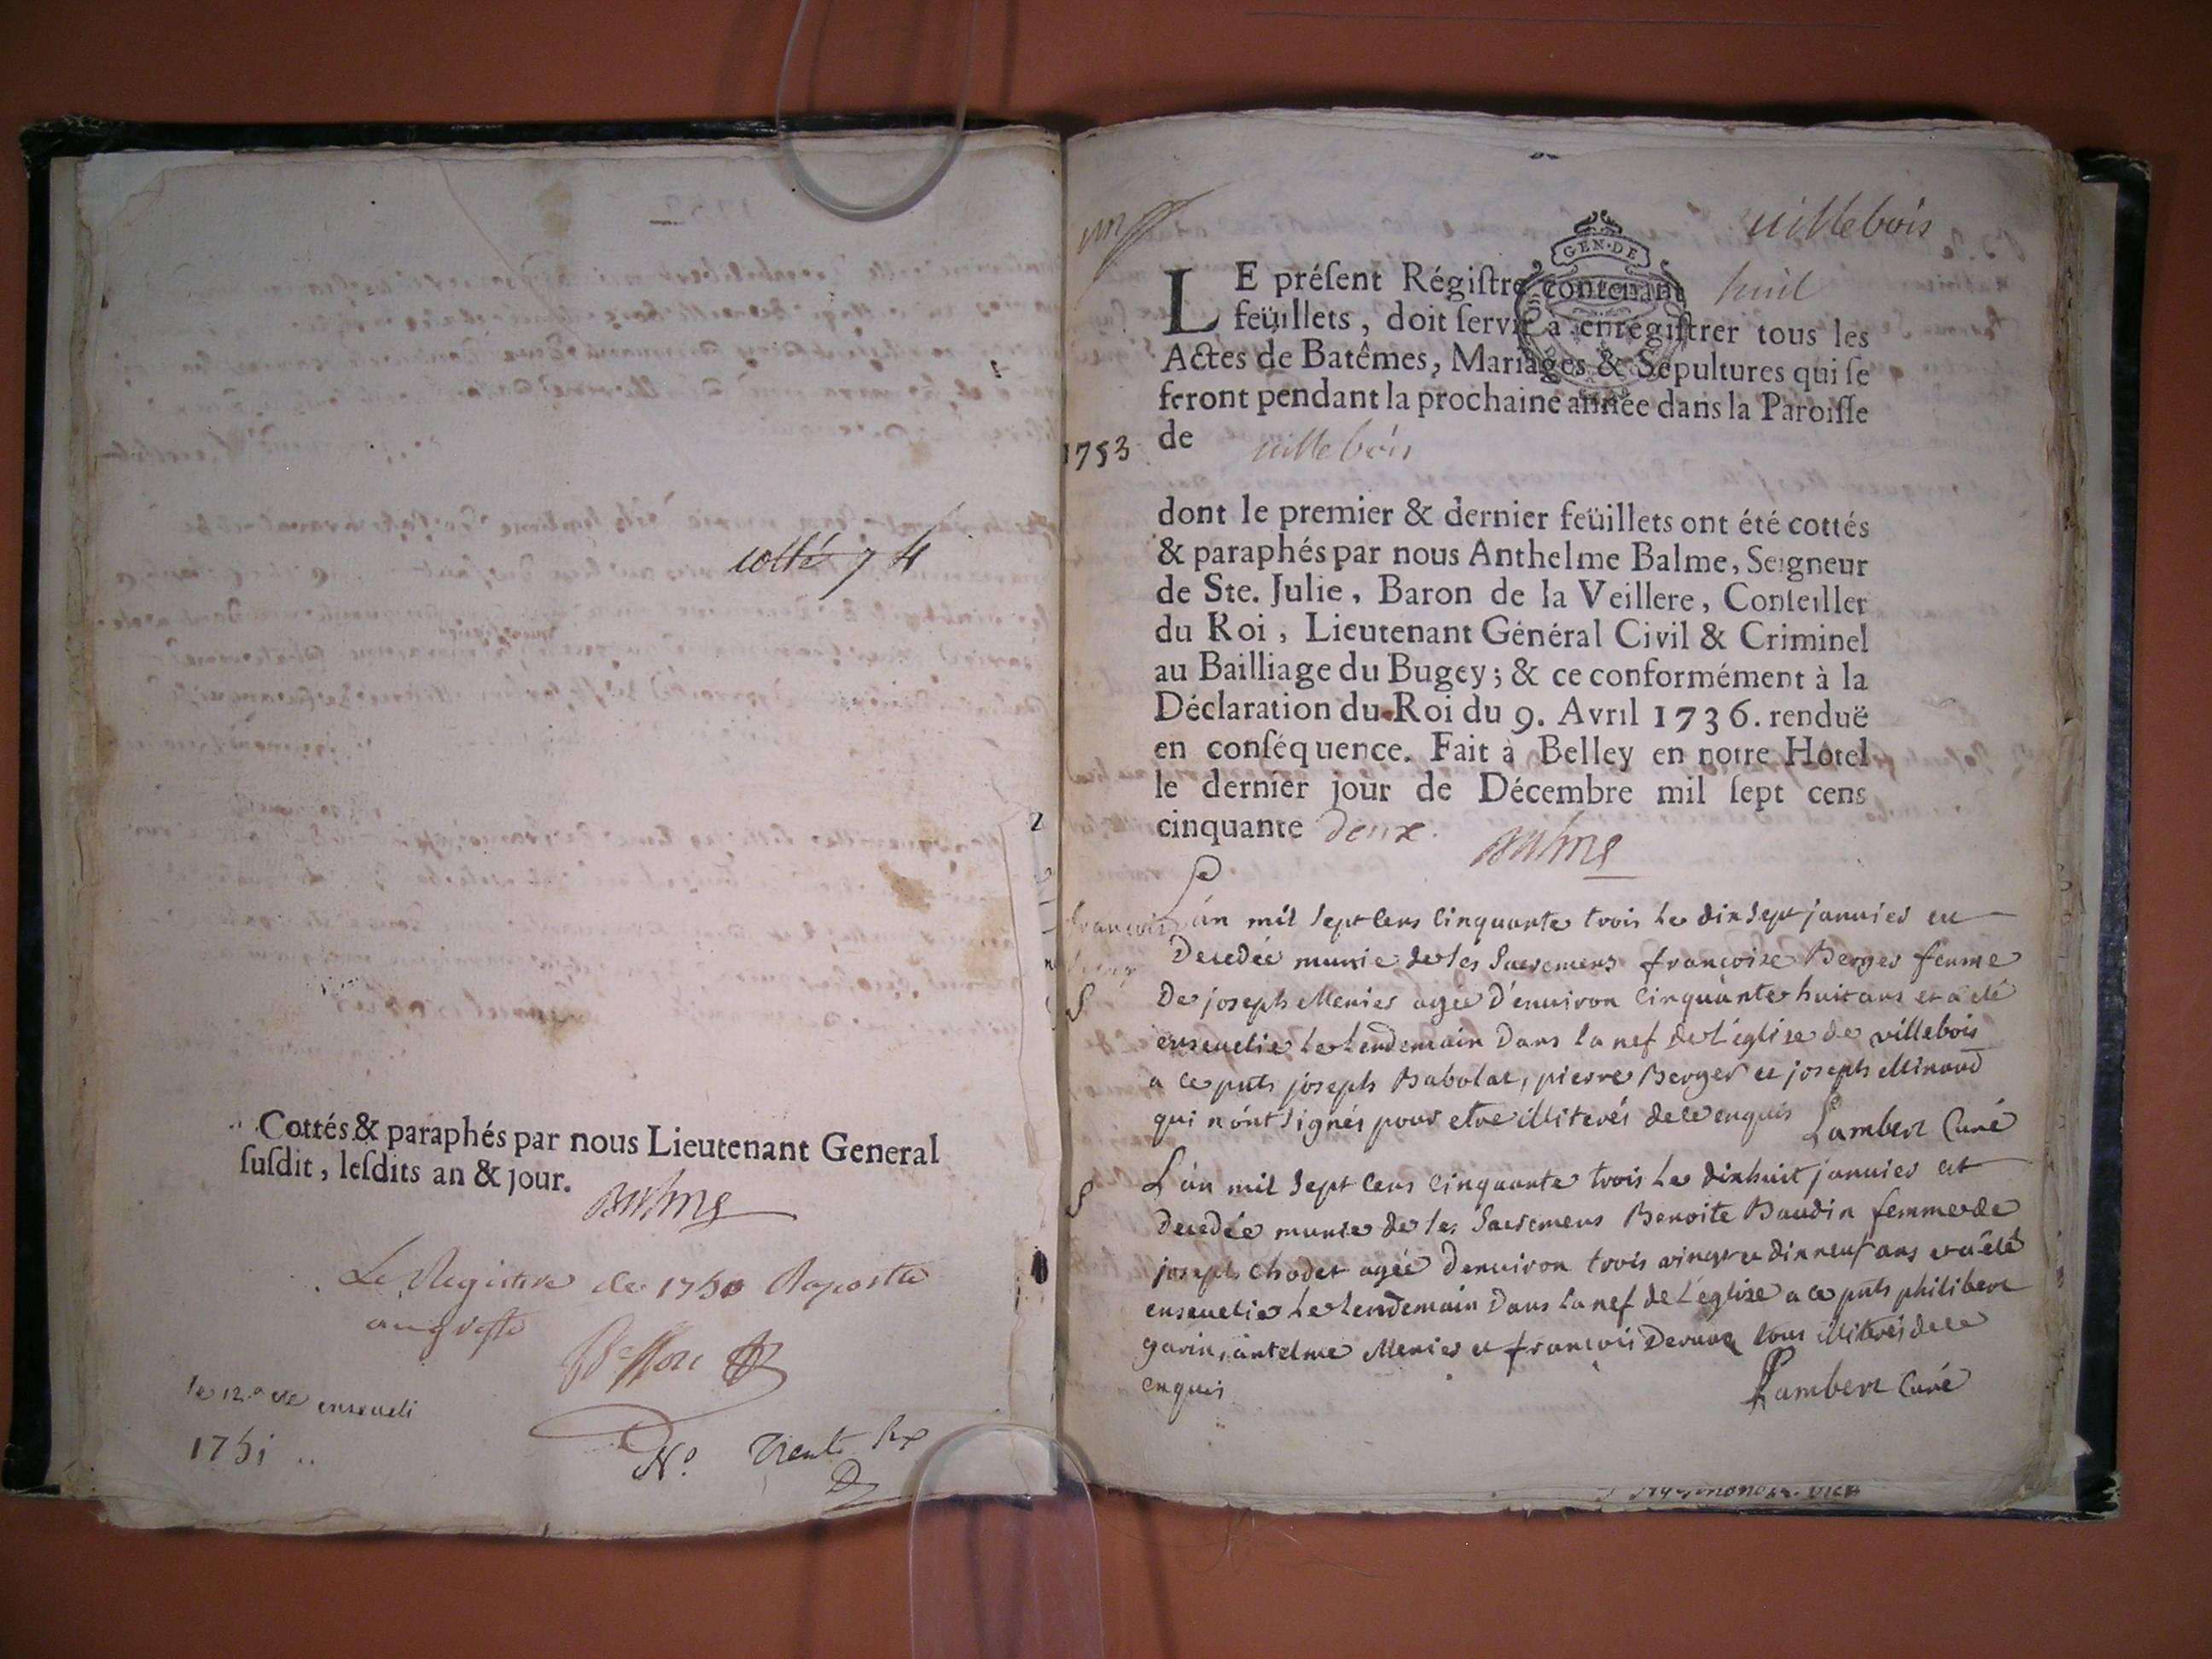 cotté 74
Cottés & paraphés par nous Lieutenant General
ſuſdit, leſdits an & jour.
Balme
Le Registre de 1750 Raporté
au greffe
le 12e enseueli
1751 ..
N.o trente
villebois
GEN·DE
LE préſent Régiſtre contenant huit
feüillets, doit ſervir à enrégiſtrer tous les
Actes de Batêmes, Mariages & Sépultures qui ſe
feront pendant la prochaine année dans la Paroiſſe
1753 de villebois
dont le premier & dernier feüillets ont été cottés
& paraphés par nous Anthelme Balme, Seigneur
de Ste. Julie, Baron de la Veillere, Conſeiller
du Roi, Lieutenant Général Civil & Criminel
au Bailliage du Bugey; & ce conformément à la
Déclaration du Roi du 9. Avril 1736. renduë
en conſéquence. Fait à Belley en notre Hôtel
le dernier jour de Décembre mil ſept cens
cinquante deux.
Balme
L'an mil sept cens cinquante trois le dix sept januier est
Decedée munie de ses sacremens françoise Berger femme
De joseph Menier agée d'enuiron cinquante huit ans et a eté
enseuelie le lendemain Dans la nef de L'église de villebois
a ce pnts joseph Babolat, pierre Berger et joseph Minaud
qui n'ont signés pour etre illiterés de ce enquis Lambert Curé
S L'an mil sept cens cinquante trois le dixhuit januier est
Decedée munie de ses sacremens Benoite Baudin femme de
joseph Chodet agée Denuiron trois vingt et dix neuf ans et a eté
enseuelie le lendemain Dans la nef de L'église a ce pnts philibert
gavin, antelme Menier et françois tous illiterés de ce
enquis Lambert Curé